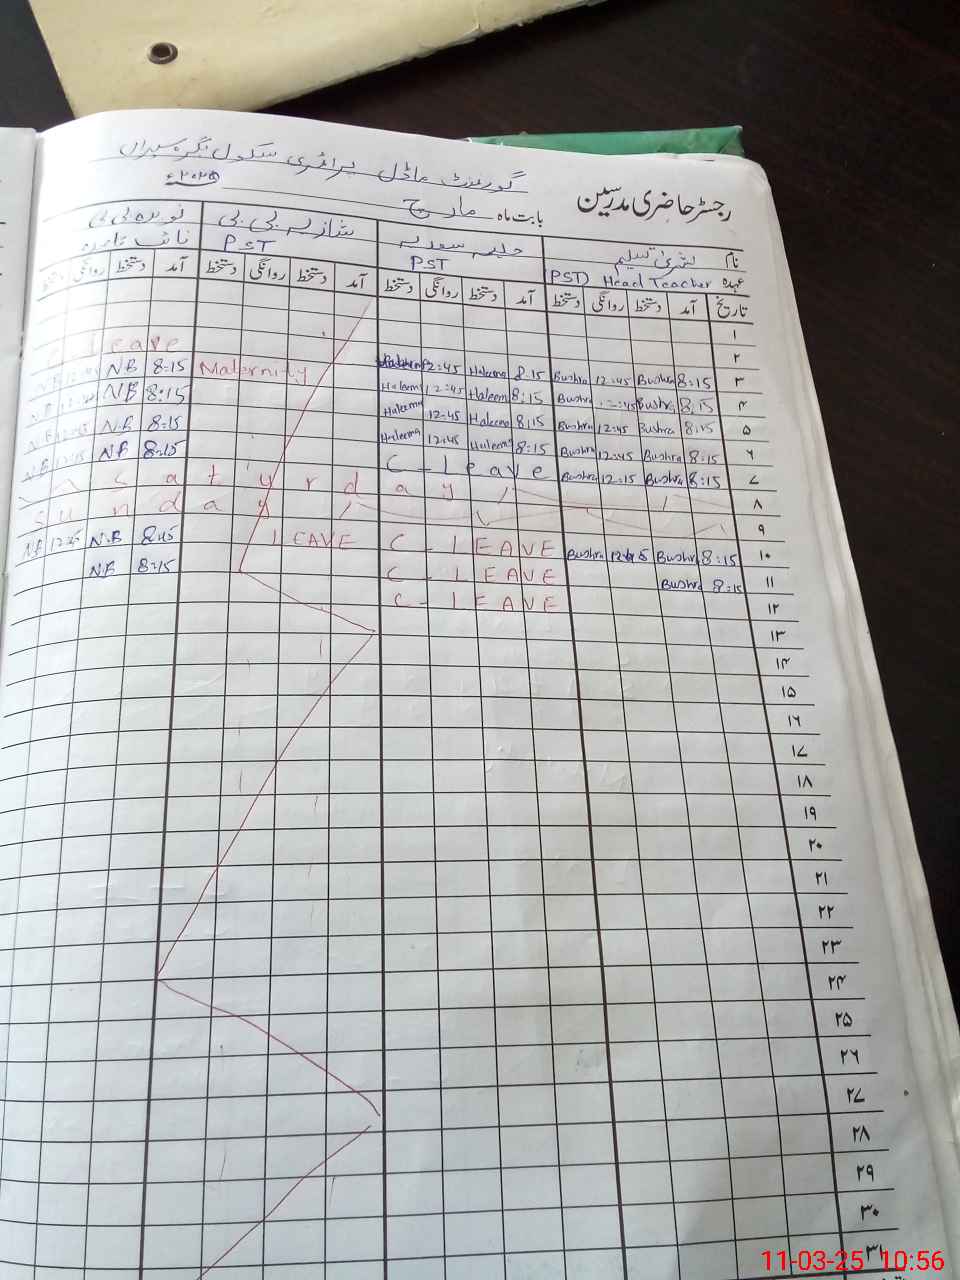 گورنمنٹ ماڈل پرائمری سکول
رجسٹر حاضری مدرسین
بابت ماہ مارچ ۲۰۲۵ء
نام بشریٰ تسلیم حلیمہ سعدیہ شازیہ بی بی
عہدہ (PST) Head Teacher PST PST
تاریخ آمد دستخط روانگی دستخط آمد دستخط روانگی دستخط آمد دستخط روانگی دستخط آمد دستخط روانگی
۱
۲ leave
۳ 8:15 Bushra 12:45 Bushra 8:15 Haleema 12:45 Maternity 8:15 NB
۴ 8:15 Bushra Bushra 8:15 Haleema 12:45 Haleema 8:15 NB
۵ 8:15 Bushra 12:45 Bushra 8:15 Haleema 12:45 Haleema 8:15 N.B
۶ 8:15 Bushra 12:45 Bushra 8:15 Haleema 12:45 Haleema 8:15 N.B
۷ 8:15 Bushra 12:15 Bushra C-leave
۸ Satyrday
۹ Sunday
۱۰ 8:15 Bushra Bushra C-LEAVE LEAVE 8:15 N.B 12:45 NB
۱۱ 8:15 Bushra C-LEAVE 8:15 N.B
۱۲ C-LEAVE
۱۳
۱۴
۱۵
۱۶
۱۷
۱۸
۱۹
۲۰
۲۱
۲۲
۲۳
۲۴
۲۵
۲۶
۲۷
۲۸
۲۹
۳۰
۳۱
11-03-25 10:56